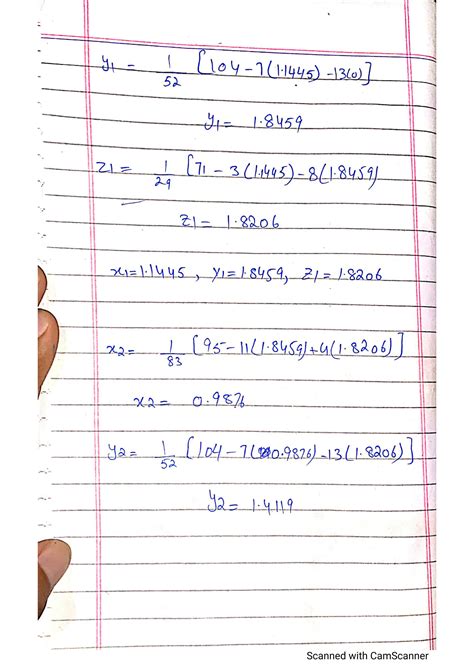 y1 = 1/52 [104 - 7(1.1445) - 13(0)]
y1 = 1.8459
z1 = 1/29 [71 - 3(1.1445) - 8(1.8459)
z1 = 1.8206
x1 = 1.1445, y1 = 1.8459, z1 = 1.8206
x2 = 1/83 [95 - 11(1.8459) + 4(1.8206)]
x2 = 0.9876
y2 = 1/52 [104 - 7(0.9876) - 13(1.8206)]
y2 = 1.4119
Scanned with CamScanner